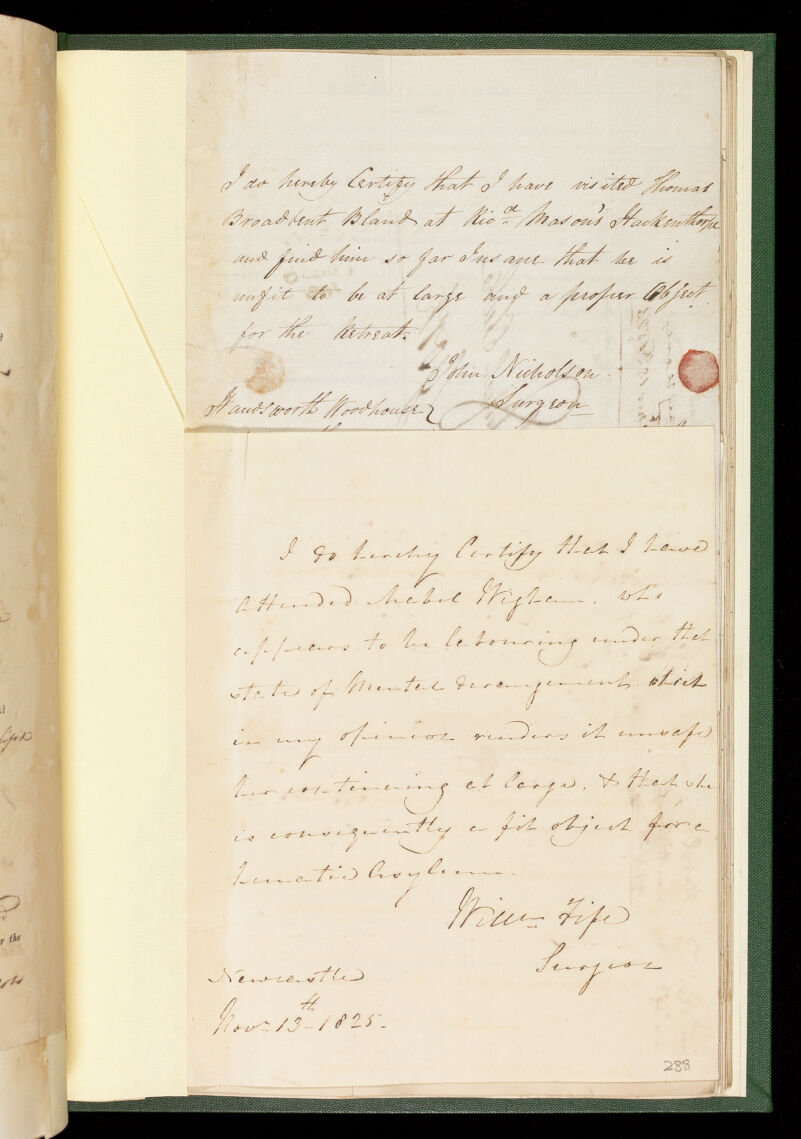 I do hereby Certify that I have visited Thomas
Broadbent Bland at Ricd. Mason's Hackenthorpe
and find him so far Insane that he is
unfit to be at large and a proper Object
for the Retreat.
John Nicholson.
Handsworth Woodhouse Surgeon
I do hereby Certify that I have
attended Mabel Wigham. who
appears to be labouring under that
state of Mental derangement which
in my opinion renders it unsafe
her continuing at large, & that she
is consequently a fit object for a
Lunatic Asylum.
Willm Fife
Surgeon
Newcastle
Novr 13th 1825.
288
r the